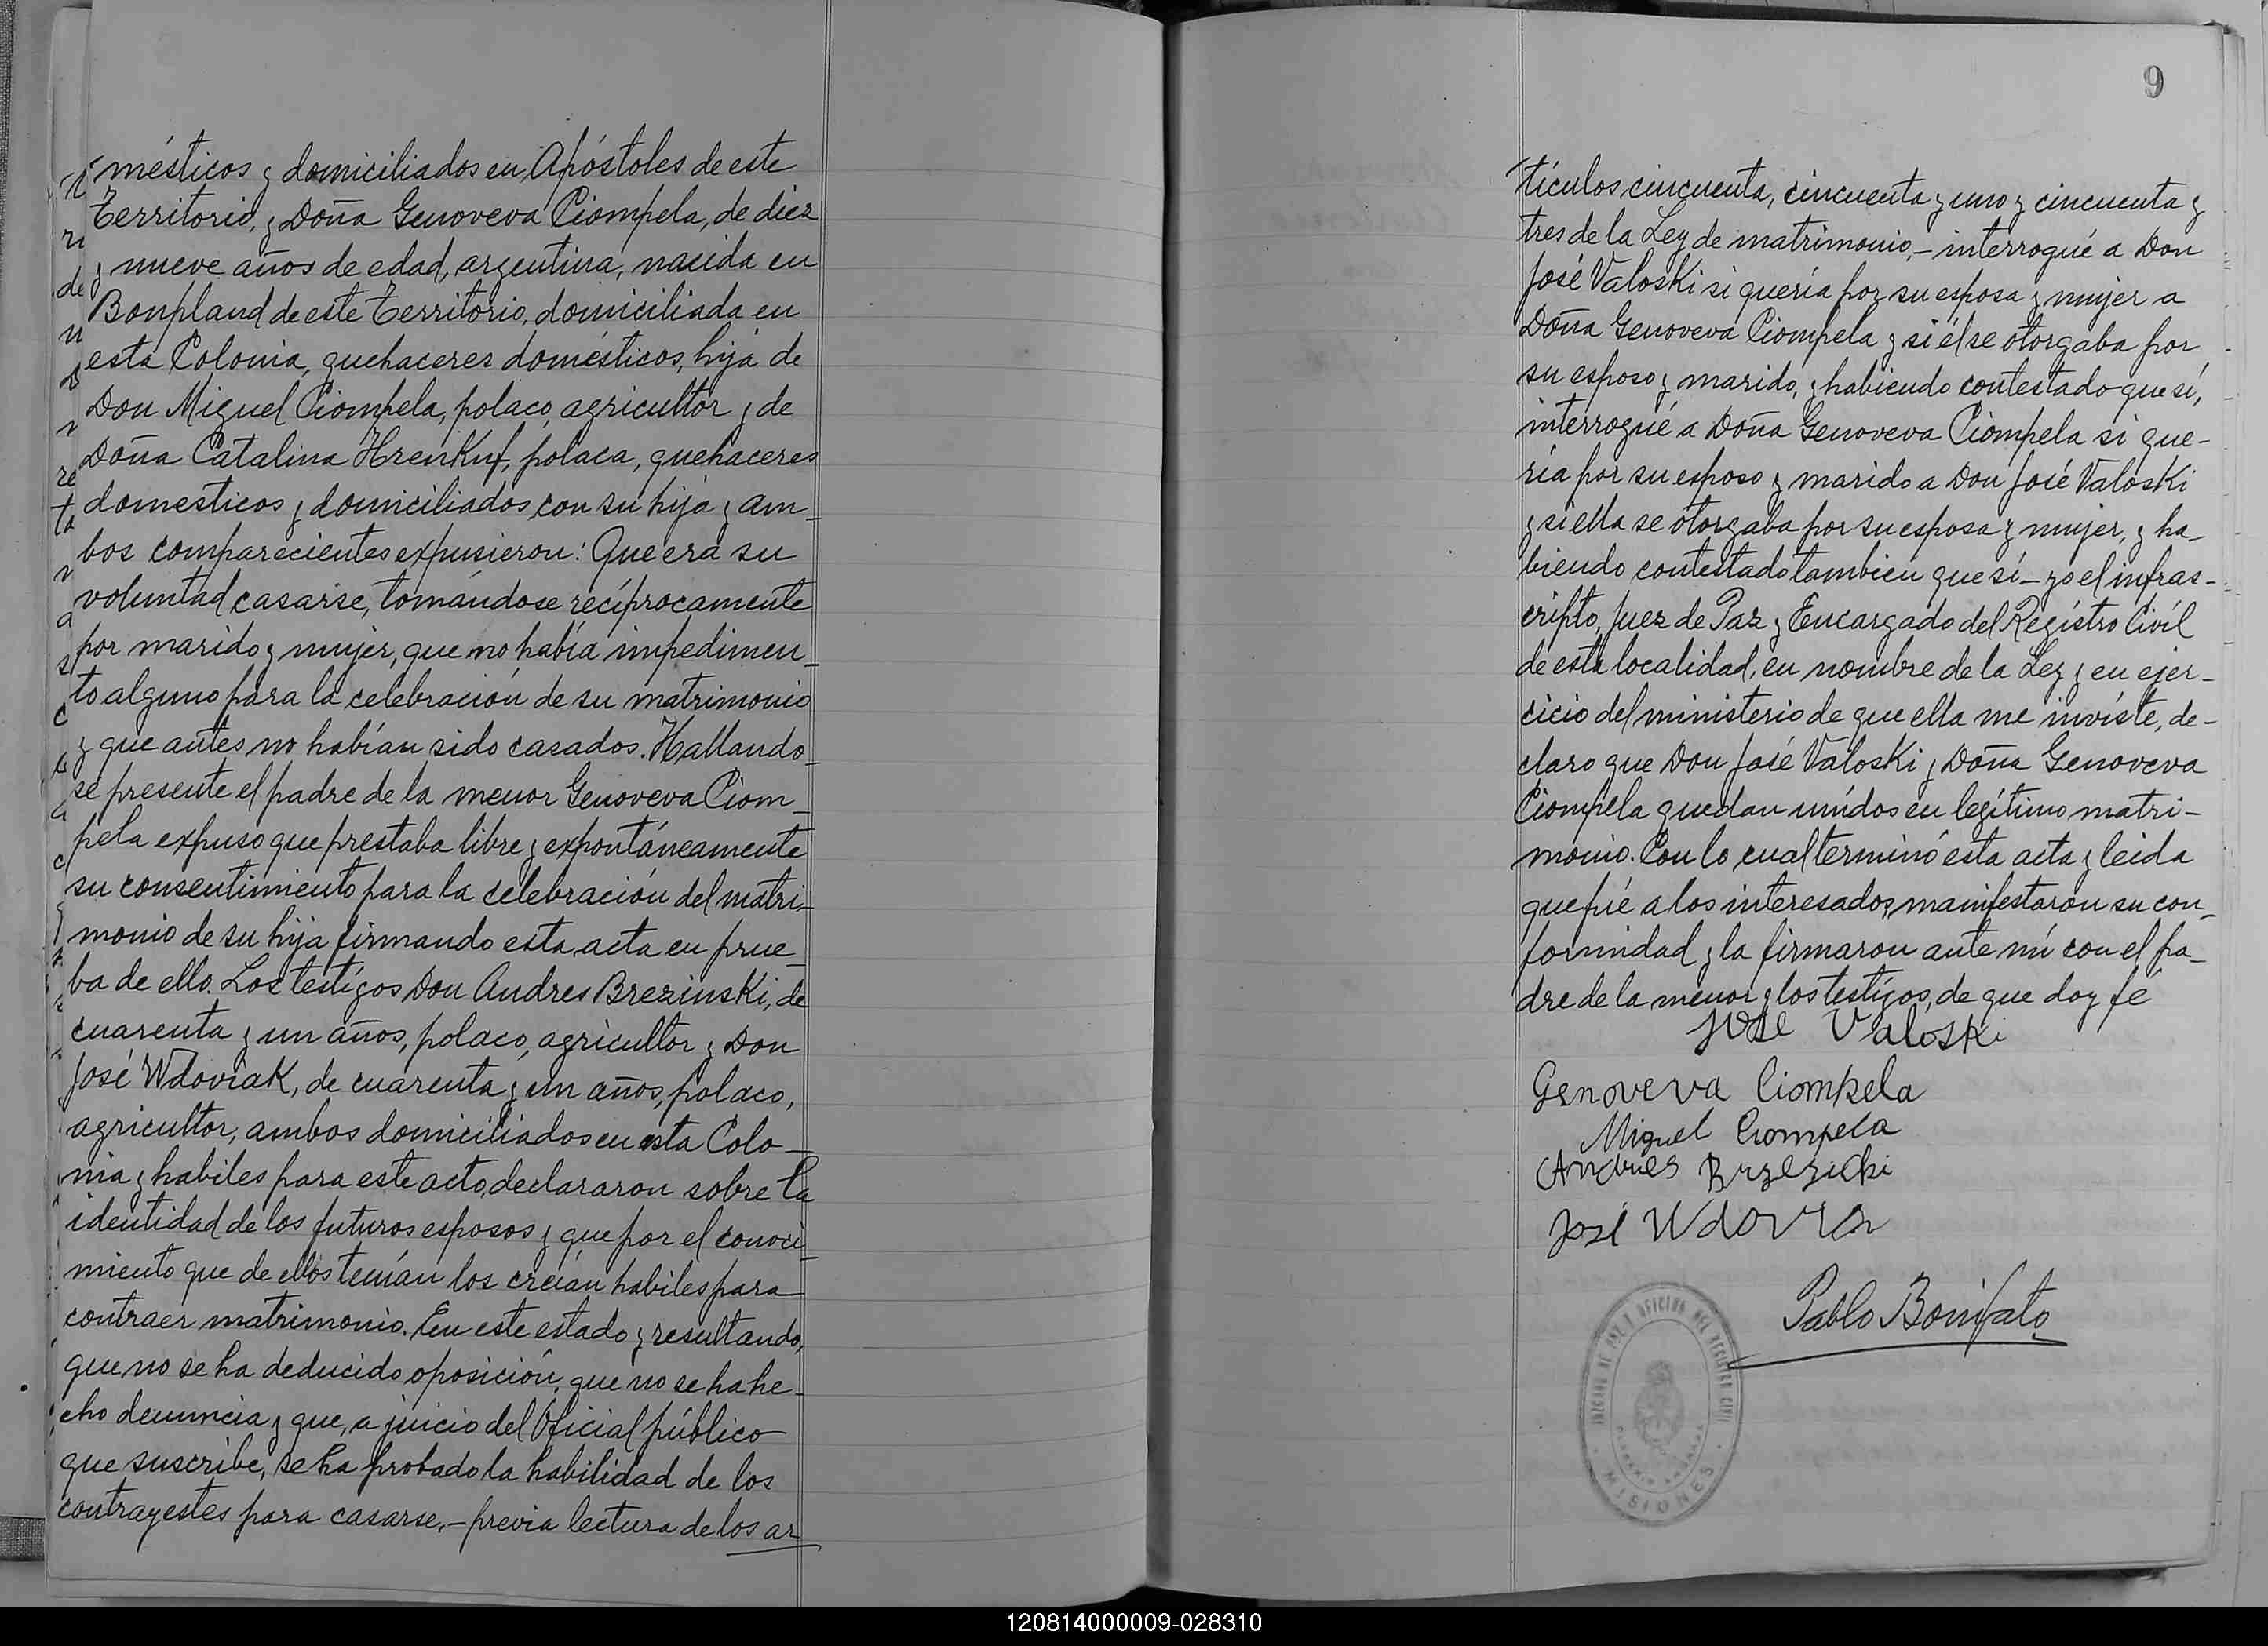 mésticos y domiciliados en Apóstoles de este
Territorio, y Doña Genoveva Ciompela, de diez
y nueve años de edad, argentina, nacida en
Bonpland de este Territorio, domiciliada en
esta Colonia, quehaceres domésticos, hija de
Don Miguel Ciompela, polaco, agricultor y de
Doña Catalina Hrenkuf, polaca, quehaceres
domesticos y domiciliados con su hija y am_
bos comparecientes expusieron: Que era su
voluntad casarse, tomándose recíprocamente
por marido y mujer, que no había impedimen_
to alguno para la celebración de su matrimonio
y que antes no habían sido casados. Hallando_
se presente el padre de la menor Genoveva Ciom_
pela expuso que prestaba libre y expontáneamente
su consentimiento para la celebración del matri_
monio de su hija firmando esta acta en prue_
ba de ello. Los testigos Don Andres Brezinski, de
cuarenta y un años, polaco, agricultor y Don
José Wdoviak, de cuarenta y un años, polaco,
agricultor, ambos domiciliados en esta Colo_
nia y habiles para este acto, declararon sobre la
identidad de los futuros esposos y que por el conoci_
miento que de ellos tenían los creían habiles para
contraer matrimonio. En este estado y resultando,
que no se ha deducido oposición, que no se ha he_
cho denuncia y que, a juicio del Oficial público
que suscribe, se ha probado la habilidad de los
contrayestes para casarse,- previa lectura de los ar
9
tículos cincuenta, cincuenta y uno y cincuenta y
tres de la Ley de matrimonio,- interrogué a Don
José Valoski si quería por su esposa y mujer a
Doña Genoveva Ciompela y si él se otorgaba por
su esposo y marido, y habiendo contestado que sí,
interrogué a Doña Genoveva Ciompela si que-
ría por su esposo y marido a Don José Valoski
y si ella se otorgaba por su esposa y mujer, y ha_
biendo contestado tambien que sí - yo el infras-
cripto, Juez de Paz y Encargado del Registro Civil
de esta localidad, en nombre de la Ley y en ejer-
cicio del ministerio de que ella me inviste, de-
claro que Don José Valoski y Doña Genoveva
Ciompela quedan unidos en legítimo matri-
monio. Con lo cual terminó esta acta y leida
que fué a los interesados, manifestaron su con_
formidad y la firmaron ante mí con el pa_
dre de la menor y los testigos, de que doy fé
José Valoski
Genoveva Ciompela
Miguel Ciompela
Andres Brzezicki
José Wdoviak
Pablo Bonifato
JUZGADO DE PAZ Y OFICINA DEL REGISTRO CIVIL
MISIONES
120814000009-028310